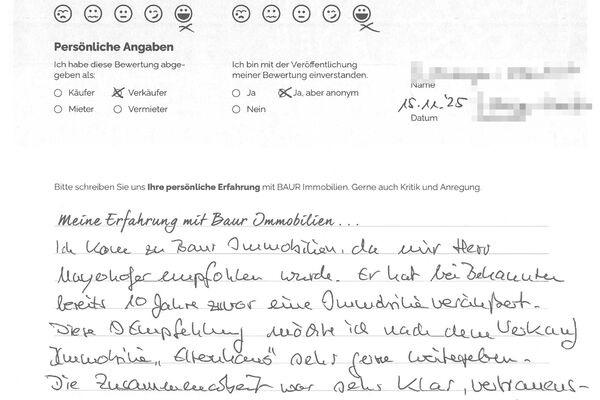 Persönliche Angaben
Ich habe diese Bewertung abge-
geben als:
Käufer
Verkäufer
Mieter
Vermieter
Ich bin mit der Veröffentlichung
meiner Bewertung einverstanden.
Ja
Ja, aber anonym
Nein
Name
15.11.'25
Datum
Bitte schreiben Sie uns Ihre persönliche Erfahrung mit BAUR Immobilien. Gerne auch Kritik und Anregung.
Meine Erfahrung mit Baur Immobilien...
Ich kam zu Baur Immobilien, da mir Herr
Mayerhofer empfohlen wurde. Er hat bei Bekannten
bereits 10 Jahre zuvor eine Immobilie veräußert.
Diese Empfehlung möchte ich nach dem Verkauf
Immobilie „Elternhaus" sehr gerne weitergeben.
Die Zusammenarbeit war sehr klar, vertrauens-